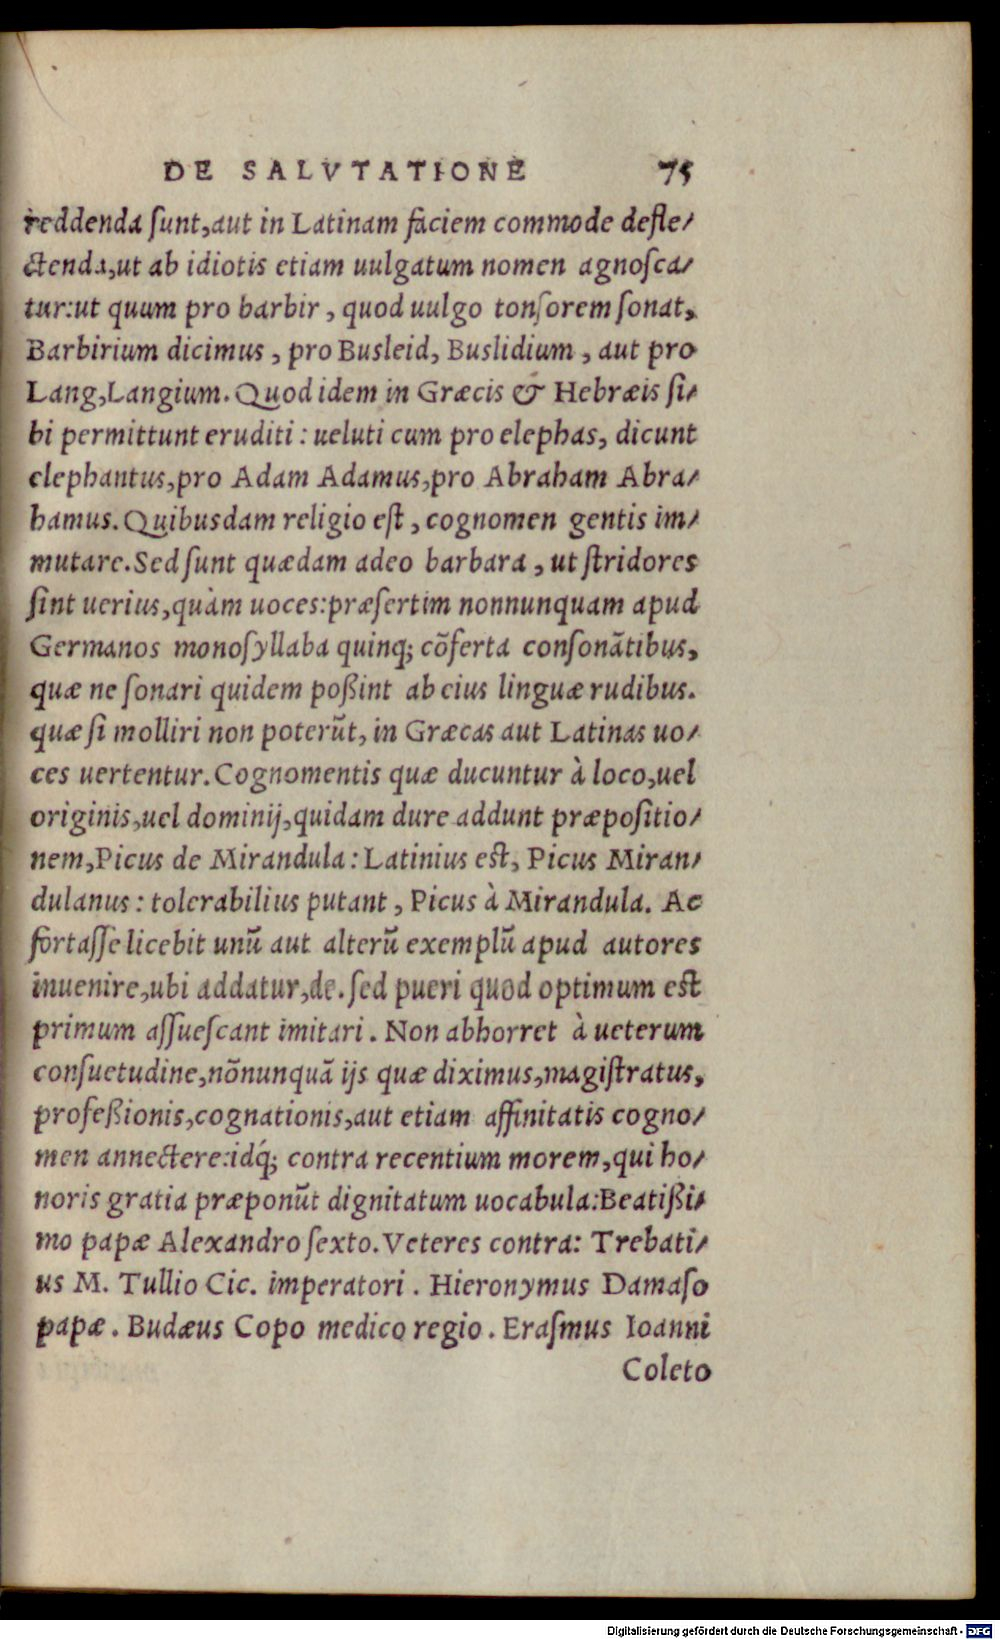 DE SALVTATIONE 75
reddenda ſunt,aut in Latinam faciem commode defle⸗
ctenda,ut ab idiotis etiam uulgatum nomen agnoſca⸗
tur:ut quum pro barbir, quod uulgo tonſorem ſonat,
Barbirium dicimus, pro Busleid, Buslidium, aut pro
Lang,Langium. Quod idem in Græcis & Hebræis ſi⸗
bi permittunt eruditi: ueluti cum pro elephas, dicunt
elephantus,pro Adam Adamus,pro Abraham Abra⸗
hamus. Quibusdam religio eſt, cognomen gentis im⸗
mutare. Sed ſunt quædam adeo barbara, ut ſtridores
ſint uerius,quàm uoces:præſertim nonnunquam apud
Germanos monoſyllaba quinq; cõferta conſonãtibus,
quæ ne ſonari quidem poßint ab eius linguæ rudibus.
quæ ſi molliri non poterũt, in Græcas aut Latinas uo⸗
ces uertentur. Cognomentis quæ ducuntur à loco,uel
originis,uel dominij,quidam dure addunt præpoſitio⸗
nem,Picus de Mirandula: Latinius est, Picus Miran⸗
dulanus: tolerabilius putant, Picus à Mirandula. Ac
fortaſſe licebit unũ aut alterũ exemplũ apud autores
inuenire,ubi addatur,de. ſed pueri quod optimum est
primum aſſueſcant imitari. Non abhorret à ueterum
conſuetudine,nõnunquã ijs quæ diximus,magiſtratus,
profeßionis,cognationis,aut etiam affinitatis cogno⸗
men annectere:idq́; contra recentium morem,qui ho⸗
noris gratia præponũt dignitatum uocabula:Beatißi⸗
mo papæ Alexandro ſexto. Veteres contra: Trebati⸗
us M. Tullio Cic. imperatori. Hieronymus Damaſo
papæ. Budæus Copo medico regio. Eraſmus Ioanni
Coleto
Digitalisierung gefördert durch die Deutsche Forschungsgemeinschaft - DFG